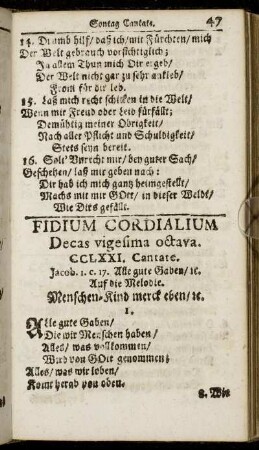 Sontag Cantate. 47
14. Drumb hilf/ daß ich/ mit Fürchten/ mich
Der Welt gebrauch vorsichtiglich;
In allem Thun mich Dir ergeb/
Der Welt nicht gar zu sehr ankleb/
From für dir leb.
15. Laß mich recht schicken in die Welt/
Wenn mir Freud oder Leid fürfällt;
Demühtig meiner Obrigkeit/
Nach aller Pflicht und Schuldigkeit/
Stets seyn bereit.
16. Solt' Unrecht mir/ bey guter Sach/
Geschehen/ laß mir geben nach:
Dir hab ich mich ganz heimgestellt/
Machs mit mir GOtt/ in dieser Weldt/
Wie Dirs gefällt.
FIDIUM CORDIALIUM
Decas vigesima octava.
CCLXXI. Cantate.
Jacob. 1. c. 17. Alle gute Gaben/ ꝛc.
Auf die Melodie.
Menschen-Kind merck eben/ ꝛc.
1.
Alle gute Gaben/
Die wir Menschen haben/
Alles/ was vollkommen/
Wird von GOtt genommen;
Alles/ was wir loben/
Komt herab von oben.
2. Wie